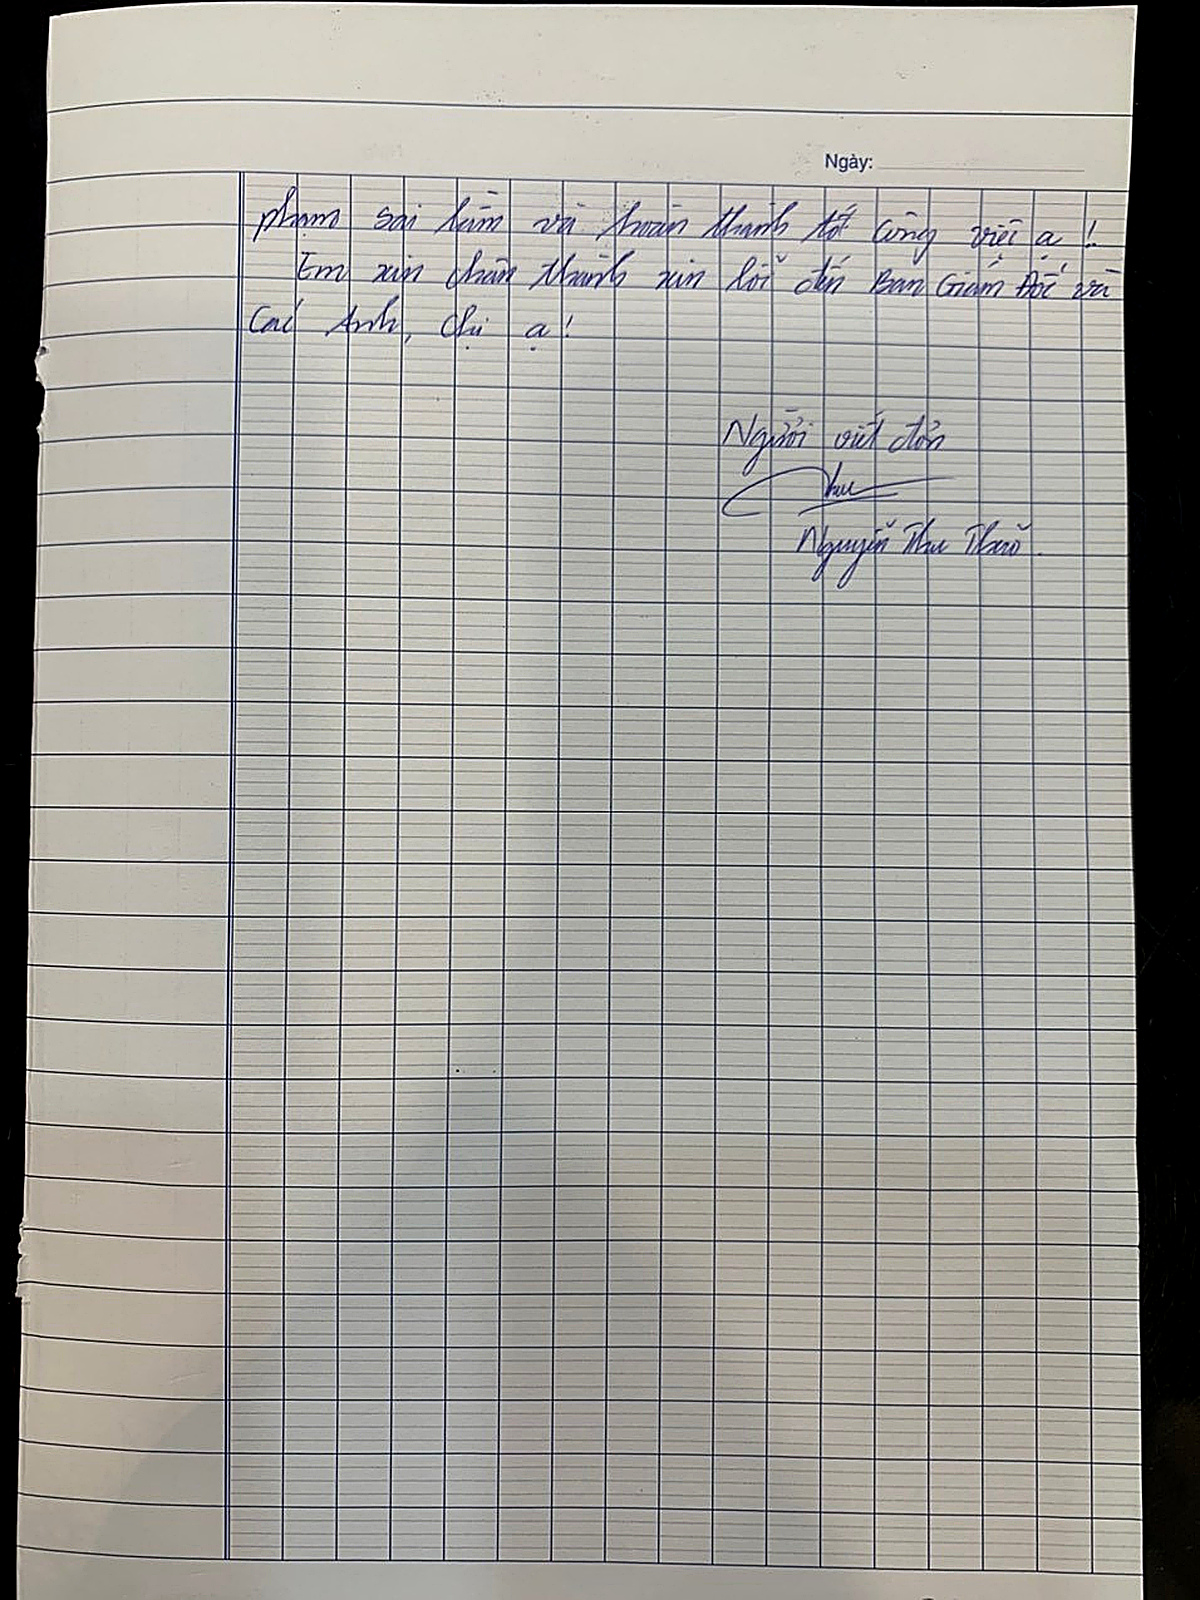 Ngày:
phạm sai lầm và hoàn thành tốt công việc ạ!
Em xin chân thành xin lỗi đến Ban Giám Đốc và
Các Anh, Chị ạ!
Người viết đơn
Thu
Nguyễn Thu Thảo